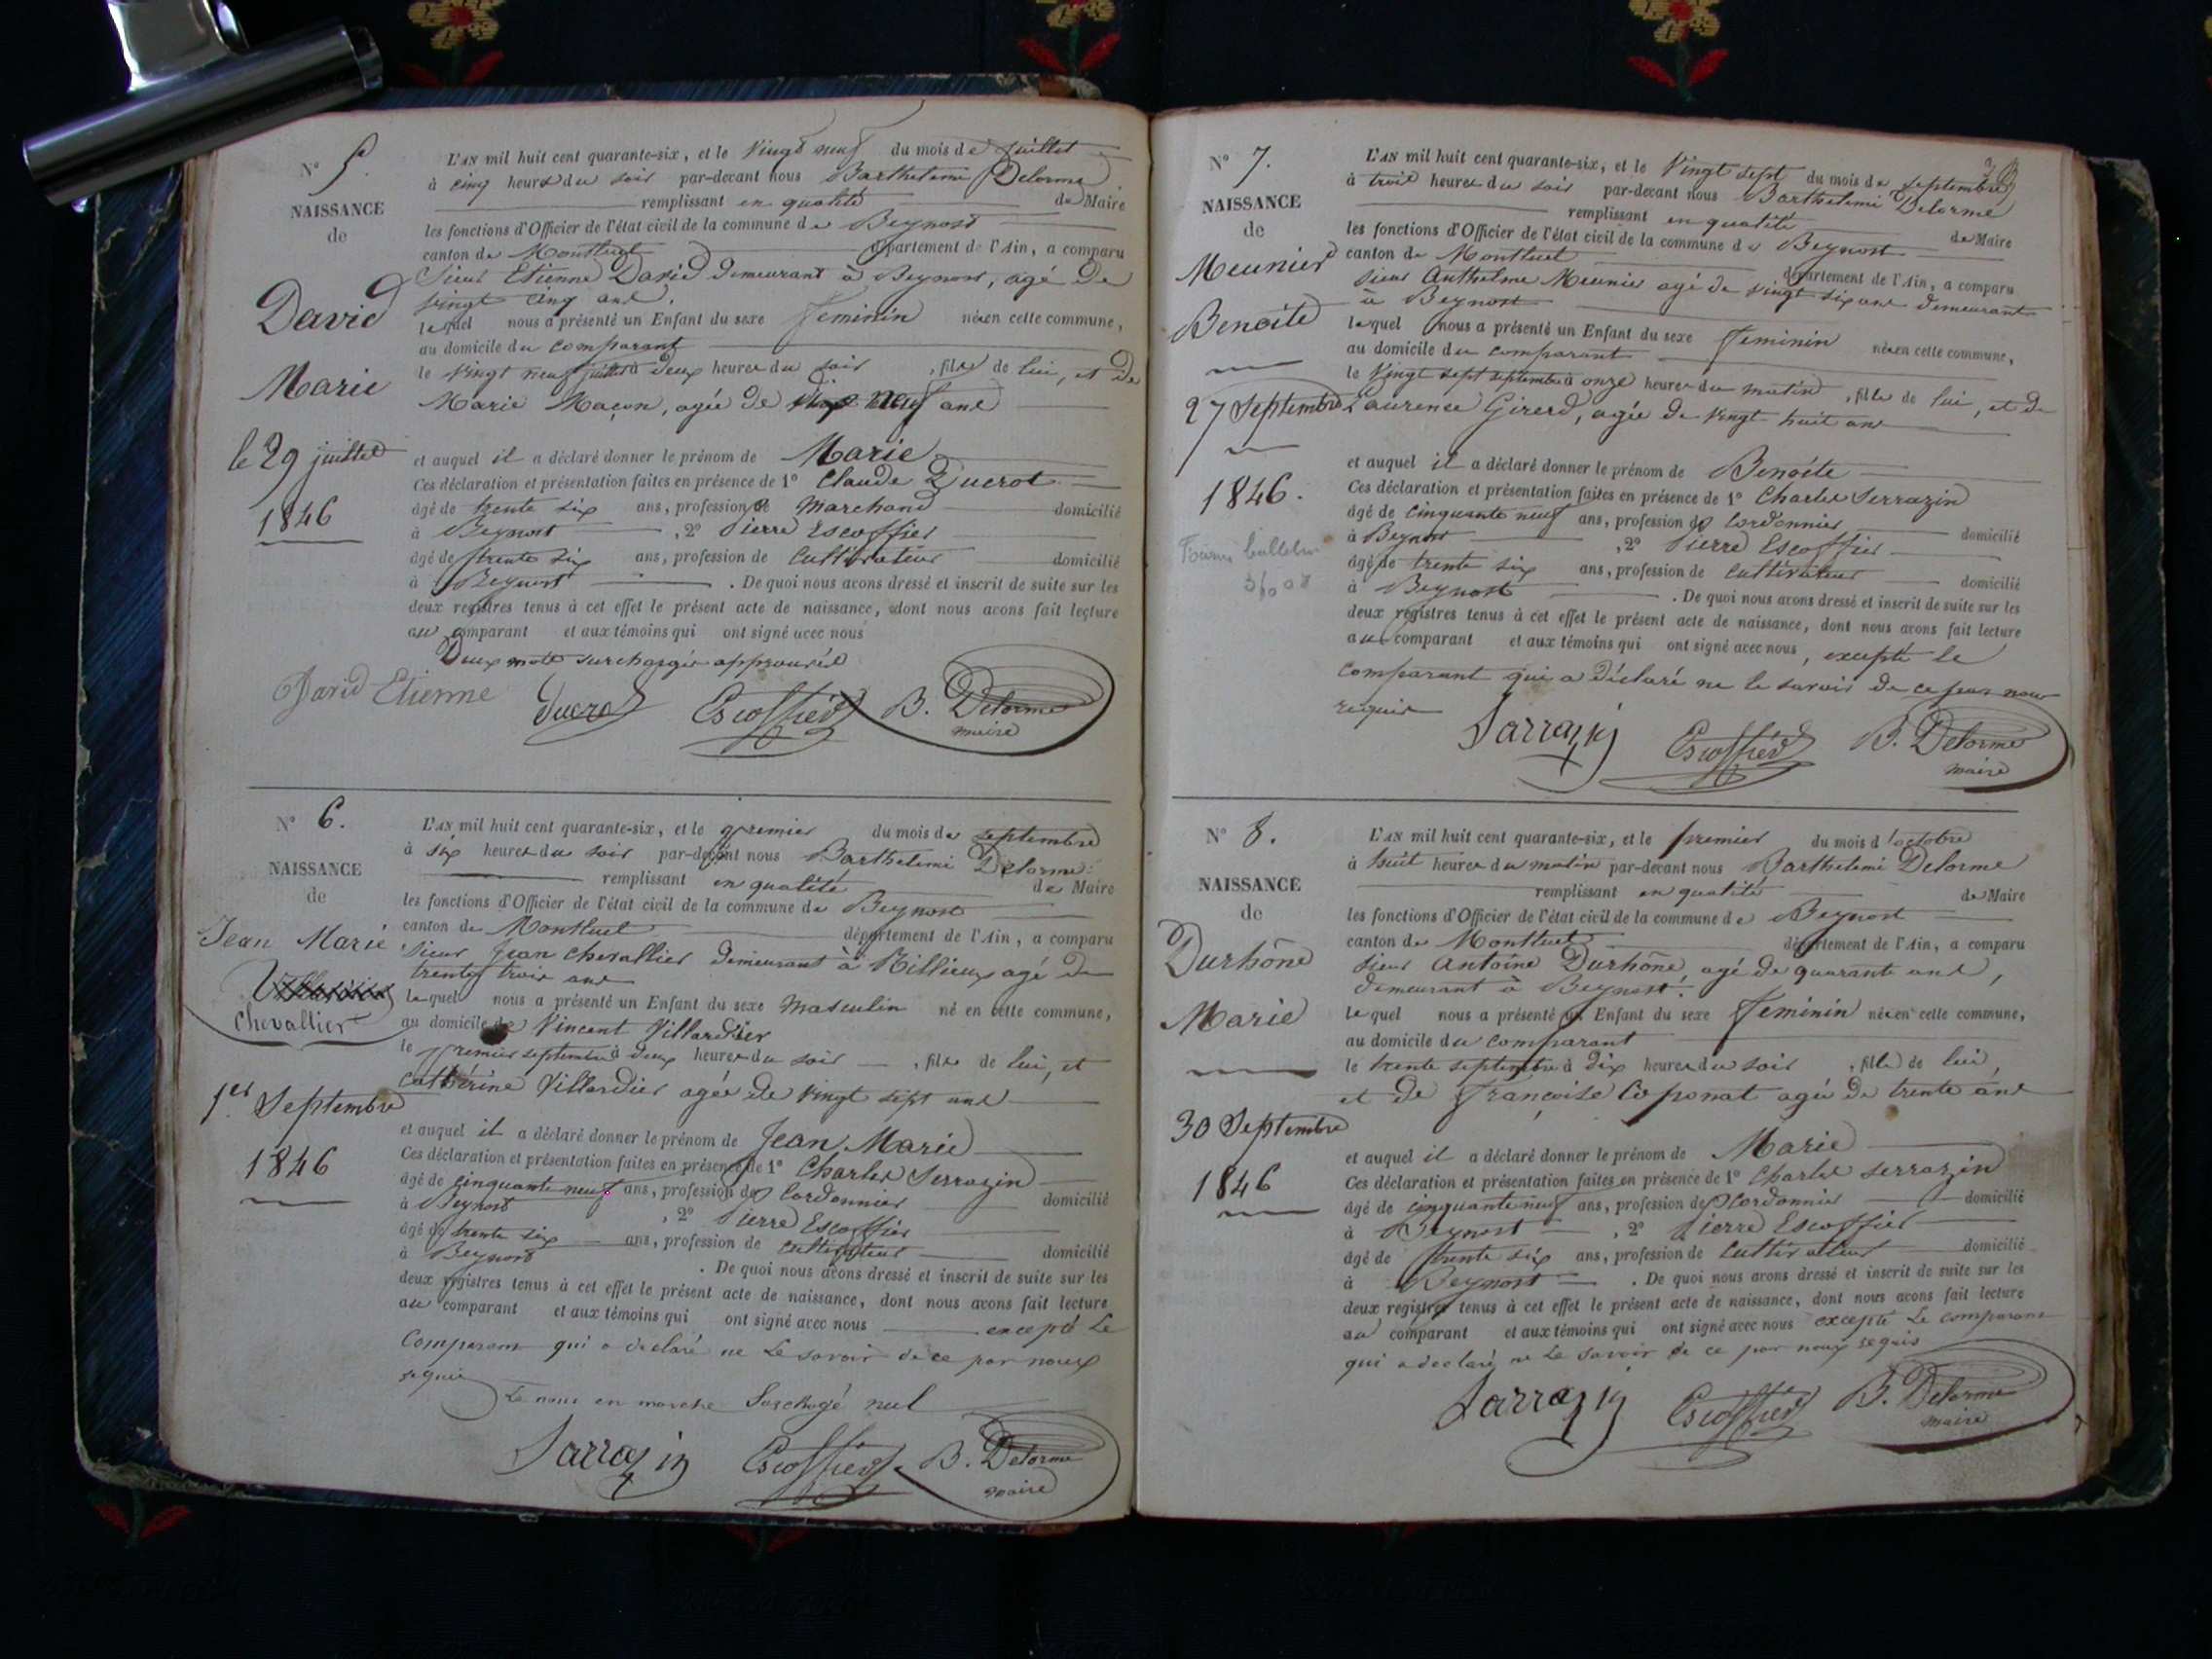 N° 5.
NAISSANCE
de
David
Marie
le 29 juillet
1846
L'AN mil huit cent quarante-six, et le vingt neuf du mois de juillet
à cinq heures du soir par-devant nous Barthelemi Delorme
remplissant en qualité de Maire
les fonctions d'Officier de l'état civil de la commune de Beynost
canton de Montluel département de l'Ain, a comparu
Sieur Etienne David demeurant à Beynost, agé de
vingt cinq ans.
lequel nous a présenté un Enfant du sexe Feminin née en cette commune,
au domicile du comparant
le vingt neuf juillet à deux heures du soir, fille de lui, et de
Marie Maçon, agée de dix neuf ans
et auquel il a déclaré donner le prénom de Marie
Ces déclaration et présentation faites en présence de 1° Claude Ducrot
âgé de trente six ans, profession de Marchand domicilié
à Beynost, 2° Pierre Escoffier
âgé de trente six ans, profession de Cultivateur domicilié
à Beynost. De quoi nous avons dressé et inscrit de suite sur les
deux registres tenus à cet effet le présent acte de naissance, dont nous avons fait lecture
au comparant et aux témoins qui ont signé avec nous
Deux mots surchargés approuvés
David Etienne Ducrot Escoffier B. Delorme
maire
N° 6.
NAISSANCE
de
Jean Marie
Chevallier
1er Septembre
1846
L'AN mil huit cent quarante-six, et le premier du mois de septembre
à six heures du soir par-devant nous Barthelemi Delorme
remplissant en qualité de Maire
les fonctions d'Officier de l'état civil de la commune de Beynost
canton de Montluel département de l'Ain, a comparu
Sieur Jean Chevallier demeurant à Rillieux agé de
trente trois ans
lequel nous a présenté un Enfant du sexe masculin né en cette commune,
au domicile de Vincent Villardier
le premier septembre à deux heures du soir, fils de lui, et
Cathérine Villardier agée de vingt sept ans
et auquel il a déclaré donner le prénom de Jean Marie
Ces déclaration et présentation faites en présence de 1° Charles Serrazin
âgé de cinquante neuf ans, profession de Cordonnier domicilié
à Beynost, 2° Pierre Escoffier
âgé de trente six ans, profession de cultivateur domicilié
à Beynost. De quoi nous avons dressé et inscrit de suite sur les
deux registres tenus à cet effet le présent acte de naissance, dont nous avons fait lecture
au comparant et aux témoins qui ont signé avec nous excepté le
comparant qui a déclaré ne le savoir de ce par nous
requis
Le nous en marche surchagé nul
Sarrazin Escoffier B. Delorme
maire
N° 7.
NAISSANCE
de
Meunier
Benoite
27 Septembre
1846.
Fourni bulletin
L'AN mil huit cent quarante-six, et le vingt sept du mois de septembre
à trois heures du soir par-devant nous Barthelemi Delorme
remplissant en qualité de Maire
les fonctions d'Officier de l'état civil de la commune de Beynost
canton de Montluel département de l'Ain, a comparu
Sieur Anthelme Meunier agé de vingt six ans demeurant
à Beynost
lequel nous a présenté un Enfant du sexe Feminin née en cette commune,
au domicile du comparant
le vingt sept septembre à onze heures du matin, fille de lui, et de
Laurence Girerd, agée de vingt huit ans
et auquel il a déclaré donner le prénom de Benoite
Ces déclaration et présentation faites en présence de 1° Charles Serrazin
âgé de cinquante neuf ans, profession de Cordonnier domicilié
à Beynost, 2° Pierre Escoffier
âgé de trente six ans, profession de cultivateur domicilié
à Beynost. De quoi nous avons dressé et inscrit de suite sur les
deux registres tenus à cet effet le présent acte de naissance, dont nous avons fait lecture
au comparant et aux témoins qui ont signé avec nous, excepté le
comparant qui a déclaré ne le savoir de ce par nous
requis
Sarrazin Escoffier B. Delorme
maire
N° 8.
NAISSANCE
de
Durhône
Marie
30 Septembre
1846
L'AN mil huit cent quarante-six, et le premier du mois d'octobre
à huit heures du matin par-devant nous Barthelemi Delorme
remplissant en qualité de Maire
les fonctions d'Officier de l'état civil de la commune de Beynost
canton de Montluel département de l'Ain, a comparu
Sieur Antoine Durhône, agé de quarante ans,
demeurant à Beynost.
lequel nous a présenté un Enfant du sexe Feminin née en cette commune,
au domicile du comparant
le trente septembre à dix heures du soir, fille de lui,
et de Françoise Coponat agée de trente ans
et auquel il a déclaré donner le prénom de Marie
Ces déclaration et présentation faites en présence de 1° Charles Serrazin
âgé de cinquante neuf ans, profession de Cordonnier domicilié
à Beynost, 2° Pierre Escoffier
âgé de trente six ans, profession de Cultivateur domicilié
à Beynost. De quoi nous avons dressé et inscrit de suite sur les
deux registres tenus à cet effet le présent acte de naissance, dont nous avons fait lecture
au comparant et aux témoins qui ont signé avec nous excepté le comparant
qui a déclaré ne le savoir de ce par nous requis
Sarrazin Escoffier B. Delorme
maire